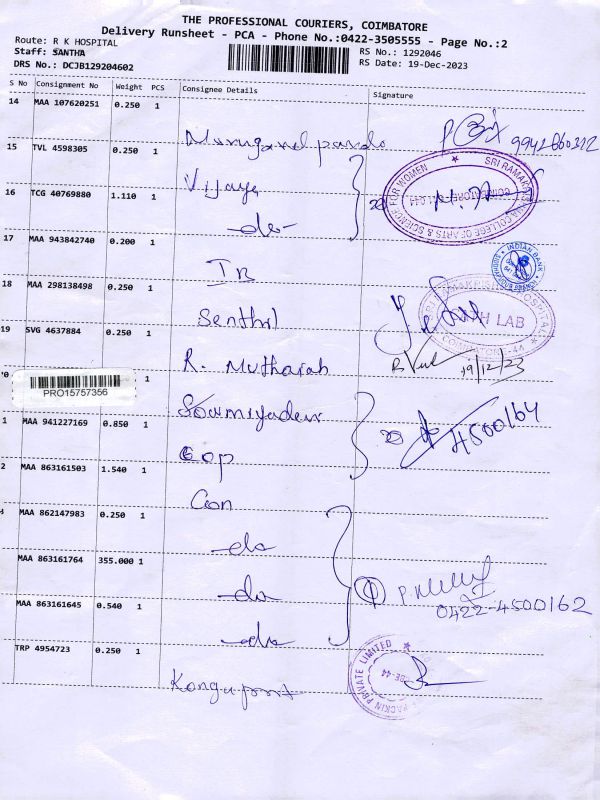 THE PROFESSIONAL COURIERS, COIMBATORE
Delivery Runsheet - PCA - Phone No.:0422-3505555 - Page No.:2
Route: R K HOSPITAL
Staff: SANTHA
RS No.: 1292046
DRS No.: DCJB129204602
RS Date: 19-Dec-2023
S No Consignment No Weight PCS Consignee Details Signature
14 MAA 107620251 0.250 1
9941860312
15 TVL 4598305 0.250 1
Vijaya
SRI RAMAKRISHNA COLLEGE OF ARTS & SCIENCE FOR WOMEN
16 TCG 40769880 1.110 1
-do-
17 MAA 943842740 0.200 1
INDIAN BANK
18 MAA 298138498 0.250 1
Senthil
H LAB
19 SVG 4637884 0.250 1
R. Mutharah
19/12/23
PRO15757356 1
Soumiyadevi
1 MAA 941227169 0.850 1
Gop
4500164
2 MAA 863161503 1.540 1
Con
MAA 862147983 0.250 1
-do
MAA 863161764 355.000 1
-do
0422-4500162
MAA 863161645 0.540 1
-do
TRP 4954723 0.250 1
PACKIN PRIVATE LIMITED